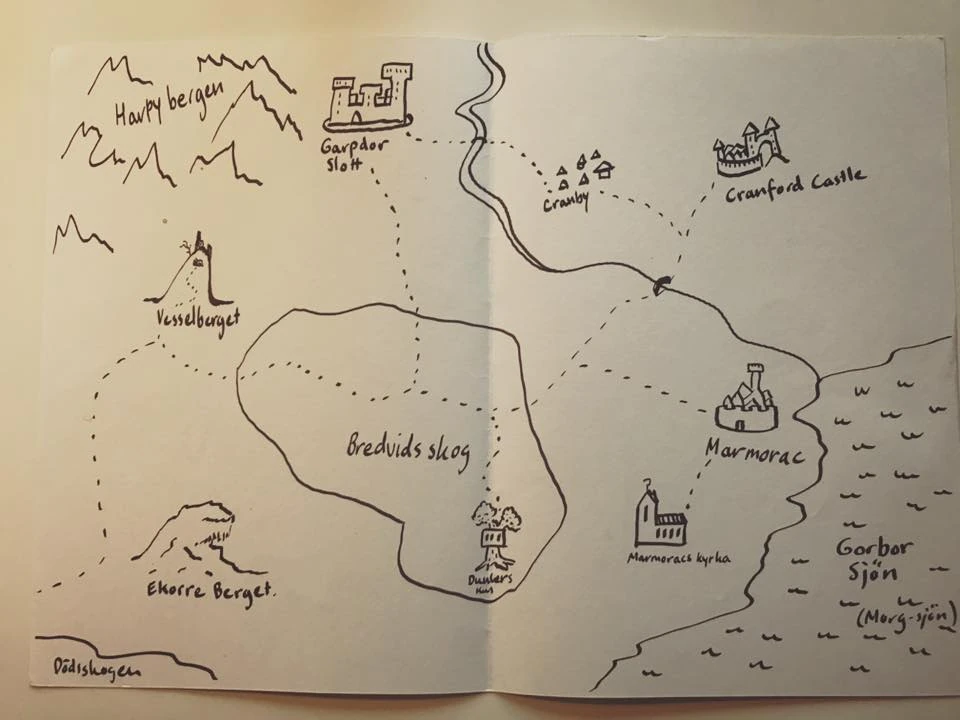 Harpybergen
Garpdor
Slott
Cranby
Cranford Castle
Vesselberget
Bredvids skog
Marmorac
Marmoracs kyrka
Dunkers
Hus
Ekorre Berget.
Gorbor
Sjön
(Morg-sjön)
Dödsskogen